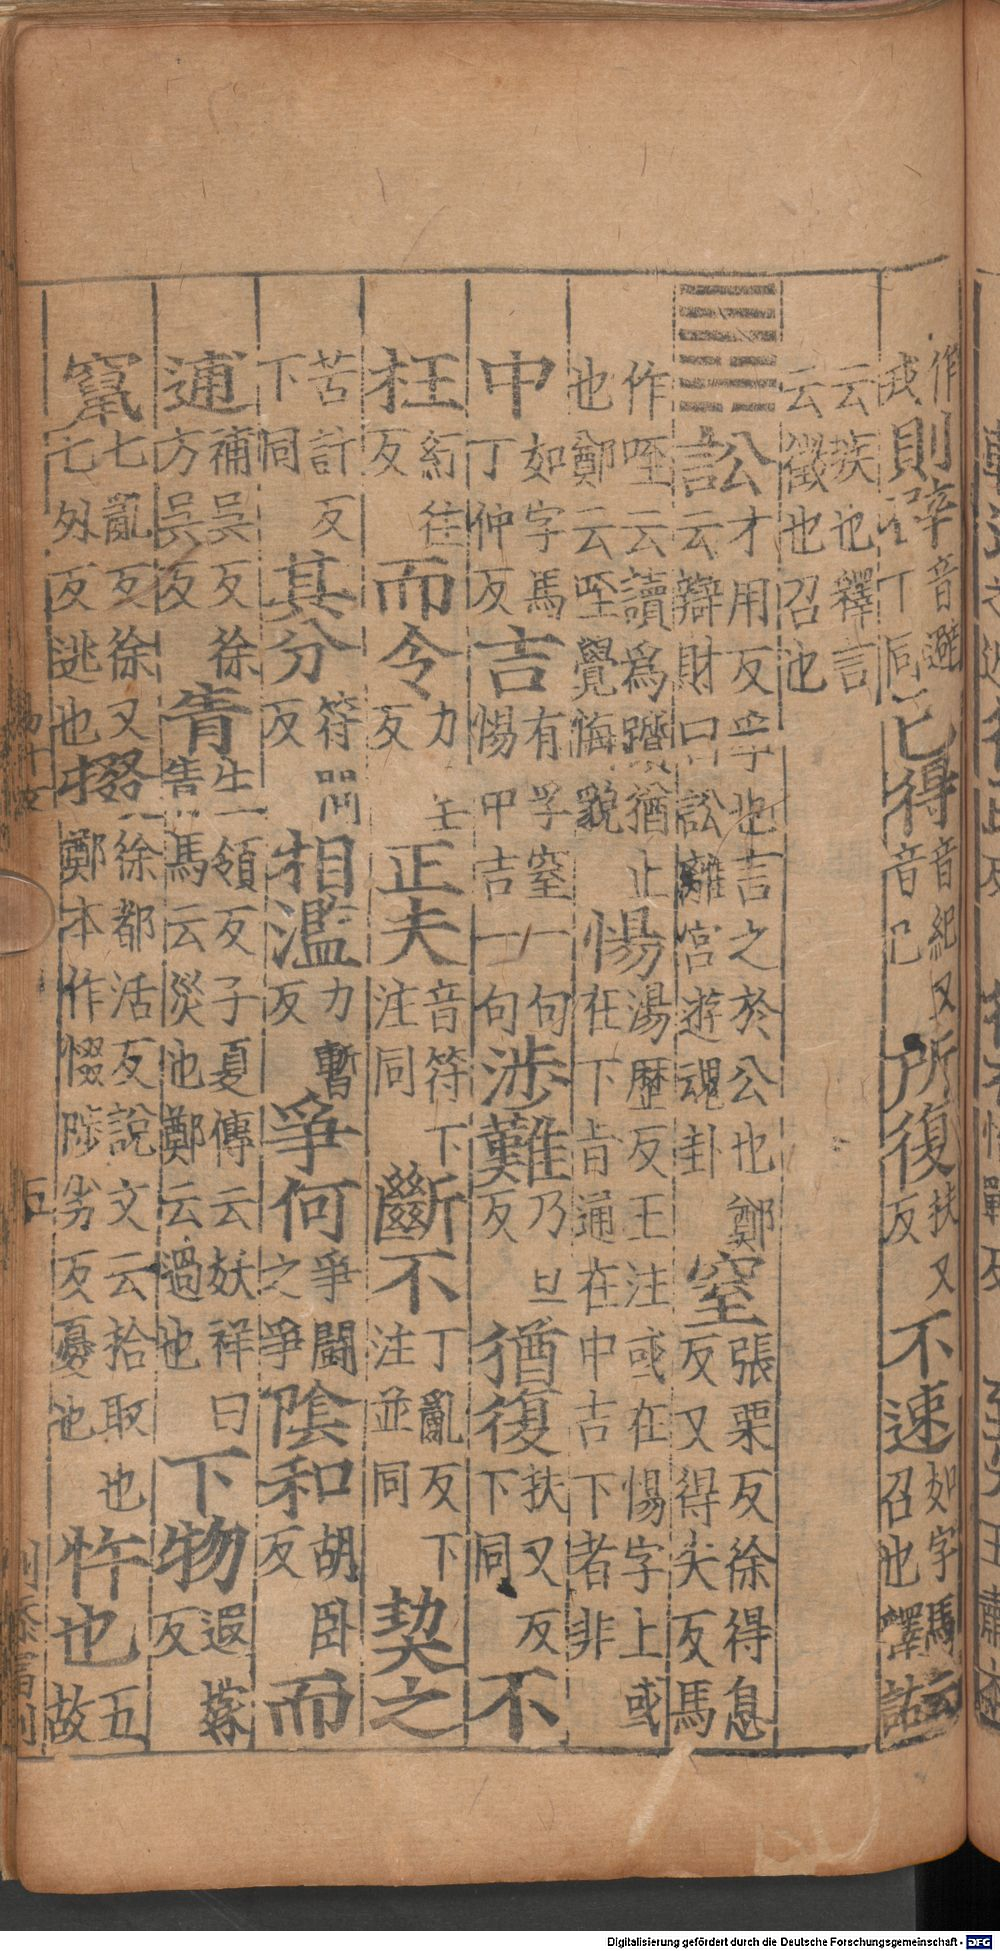 作戎則辟音避下同已得音紀又音己所復扶又反不速如字馬云召也釋詁
云疾也釋言云徵也召也
䷅訟才用反爭也言之於公也鄭云辯財曰訟離宮遊魂卦窒張栗反徐得息反又得失反馬
作咥云讀爲躓猶止也鄭云咥覺悔貌惕湯歷反王注或在惕字上或在下皆通在中吉下者非
中如字馬丁仲反吉有孚窒一句惕中吉一句涉難乃旦反猶復扶又反下同不
枉紆往反而令力呈反正夫音符下注同斷不丁亂反下注並同契之
苦計反下同其分符問反相濫力暫反爭何爭鬬之爭陰和胡卧反而
逋補吳反徐方吳反眚生領反子夏傳云妖祥曰眚馬云災也鄭云過也下物遐嫁反
竄七亂反徐又七外反逃也掇徐都活反說文云拾取也鄭本作惙陟劣反憂也忤也五故
Digitalisierung gefördert durch die Deutsche Forschungsgemeinschaft - DFG